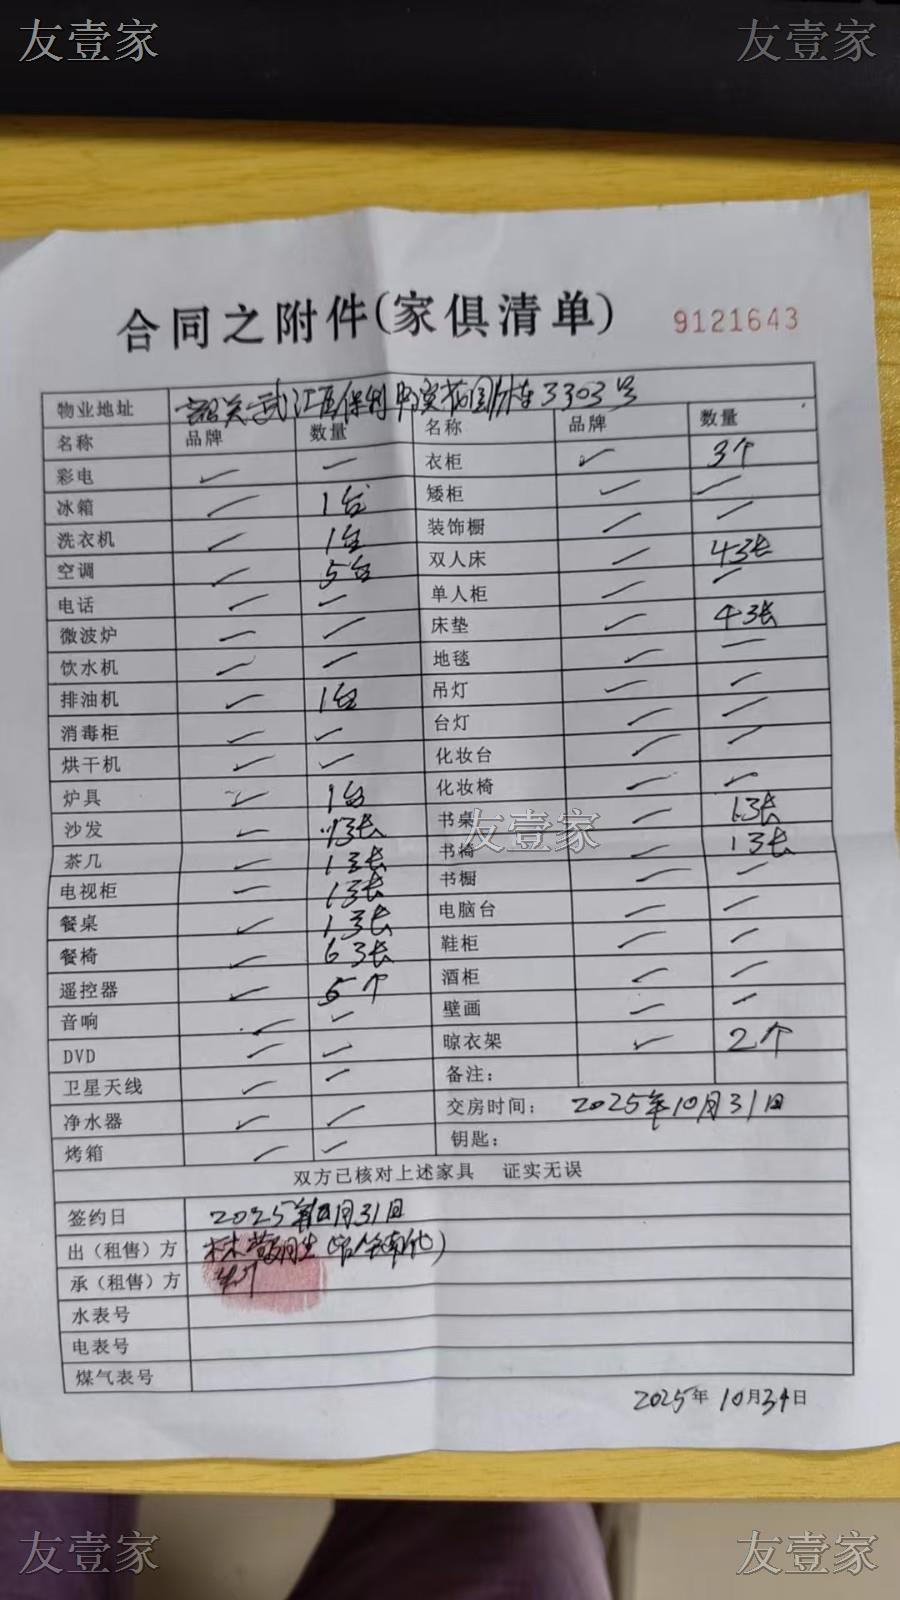 友壹家 友壹家
合同之附件(家俱清单) 9121643
物业地址 韶关武江区保利 花园 3303号
名称 品牌 数量 名称 品牌 数量
彩电 衣柜 3个
冰箱 1台 矮柜
洗衣机 1台 装饰橱
空调 5台 双人床 4张
电话 单人柜
微波炉 床垫 4张
饮水机 地毯
排油机 1台 吊灯
消毒柜 台灯
烘干机 化妆台
炉具 1台 化妆椅
沙发 书桌 1张
友壹家
茶几 1张 书椅 1张
电视柜 1张 书橱
餐桌 1张 电脑台
餐椅 6张 鞋柜
遥控器 5个 酒柜
音响 壁画
DVD 晾衣架 2个
卫星天线 备注：
净水器 交房时间： 2025年10月31日
烤箱 钥匙：
双方已核对上述家具 证实无误
签约日 2025年 月31日
出（租售）方 林
承（租售）方
水表号
电表号
煤气表号
2025年10月31日
友壹家 友壹家